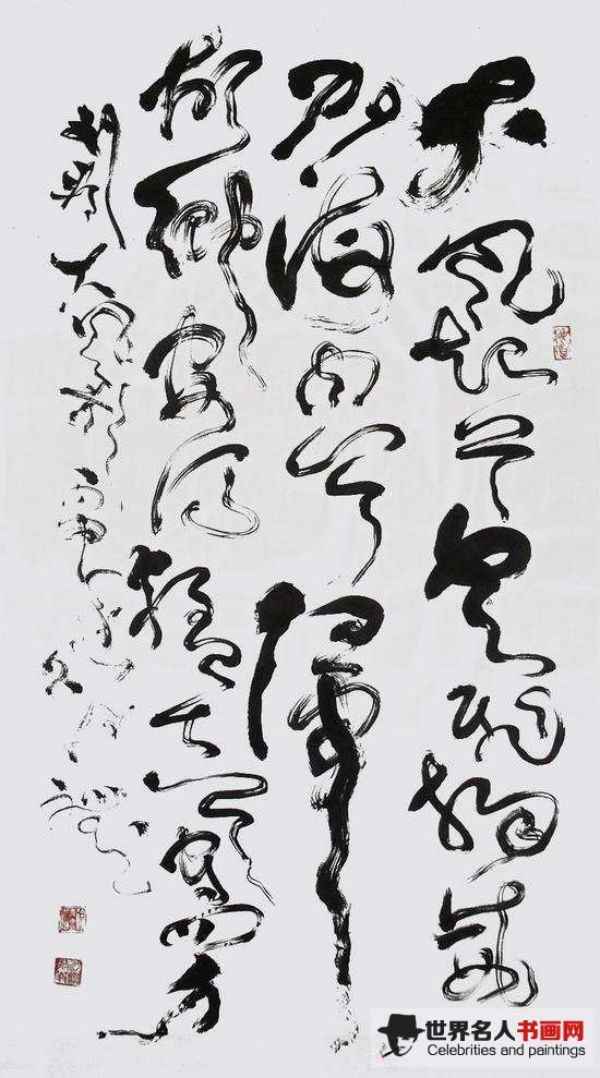 大風起兮雲飛揚威
加海內兮歸
故鄉安得猛士兮守四方
劉邦大風歌
世界名人书画网
Celebrities and paintings